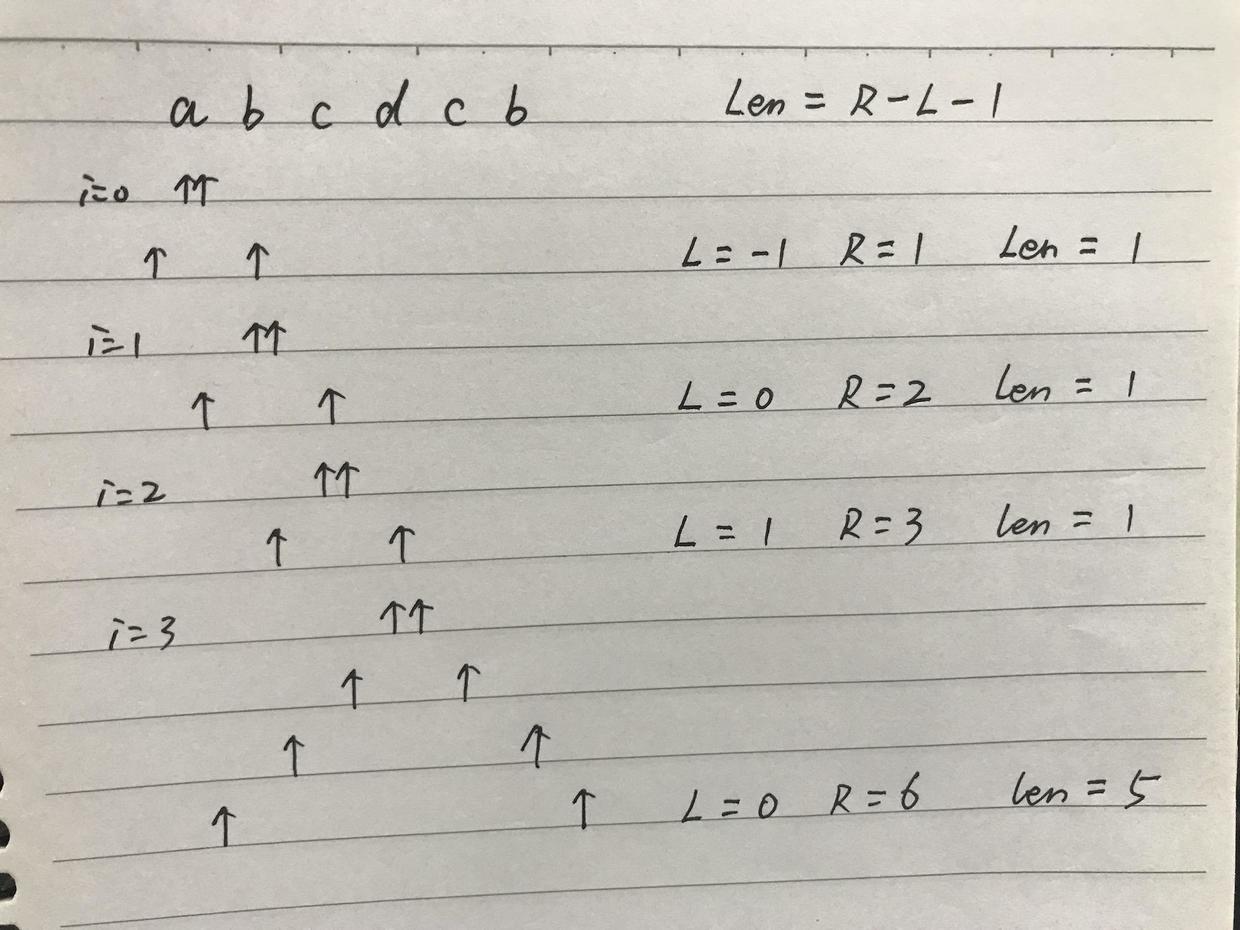 a b c d c b Len = R-L-1
i=0 ↑↑
↑ ↑ L=-1 R=1 Len = 1
i=1 ↑↑
↑ ↑ L=0 R=2 len = 1
i=2 ↑↑
↑ ↑ L=1 R=3 len = 1
i=3 ↑↑
↑ ↑
↑ ↑
↑ ↑ L=0 R=6 len = 5